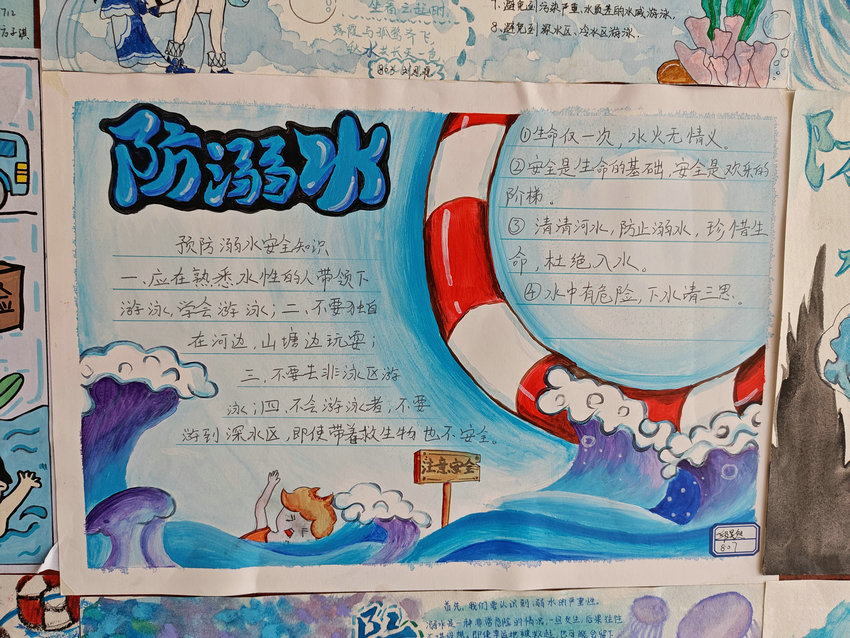 生者去起时
落霞与孤鹜齐飞
秋水共长天一色
7.避免到污染严重、水质差的水域游泳.
8.避免到深水区、冷水区游泳.
防溺水
预防溺水安全知识
一.应在熟悉水性的人带领下
游泳,学会游泳;二、不要独自
在河边,山塘边玩耍;
三.不要去非泳区游
泳;四.不会游泳者;不要
游到深水区,即使带着救生物也不安全。
①生命仅一次,水火无情义。
②安全是生命的基础,安全是欢乐的
阶梯。
③ 清清河水,防止溺水,珍惜生
命,杜绝入水。
④水中有危险,下水请三思。
注意安全
807
首先,我们要认识到溺水的严重性.
溺水是一种非常危险的情况,一旦发生,后果往往